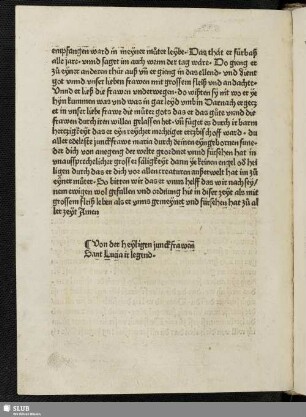 empfangen ward in meyner můter leybe. Daz thåt er fürbaß
alle jare. vnnd saget im auch wenn der tag wäre. Do gieng er
zů eyner anderen thür auß vñ er gieng in das ellend. vnd dienet
got vnnd vnser lieben frawen mit grossem fleiß vnd andacht.
Vnnd er ließ die frawen vnderwegen. do wißten sy nit wo er ye
hyn kummen was vnd was in gar leyd vmb in Darnach er gecz
et in vnser liebe frawe die můter gots das er das gůte vnnd die
frawen durch iren willen gelassen het. vñ füget er durch ir barm
herczigkeyt das er eyn reycher mächtiger erczbischoff ward. da
aller edelste junckfrawe maria durch deinen eyngebornen sune
der dich von anegeng der welte geordnet vnnd fürsehen hat in
vnaussprechelicher grosser säligkeyt dann ye keinen engel oð hei
ligen durch das er dich vor allen creaturen außerwelt hat im zů
eyner můter. So bitten wir das er vnns helff das wir nach sey/
nem ewigen wol gefallen vnd ordnung hie in diser zeyte als mit
grossem fleiß leben als er vnns gemeynet vnd fürsehen hat zů al
ler zeyt Amen
Von der heyligen junckfrawen
Sant Lucia ir legend.
SLUB